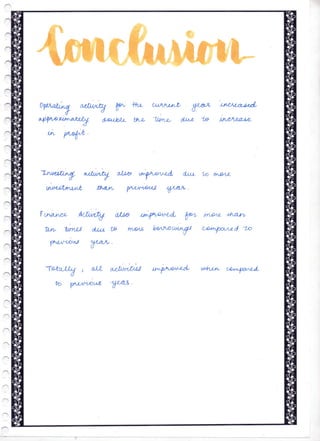 Conclusion
Operating activity for the current year increased
approximately double the time due to increase
in profit.
Investing activity also improved due to more
investment than previous year.
Finance Activity also improved for more than
ten times due to more borrowings compared to
previous year.
Totally, all activities improved when compared
to previous year.